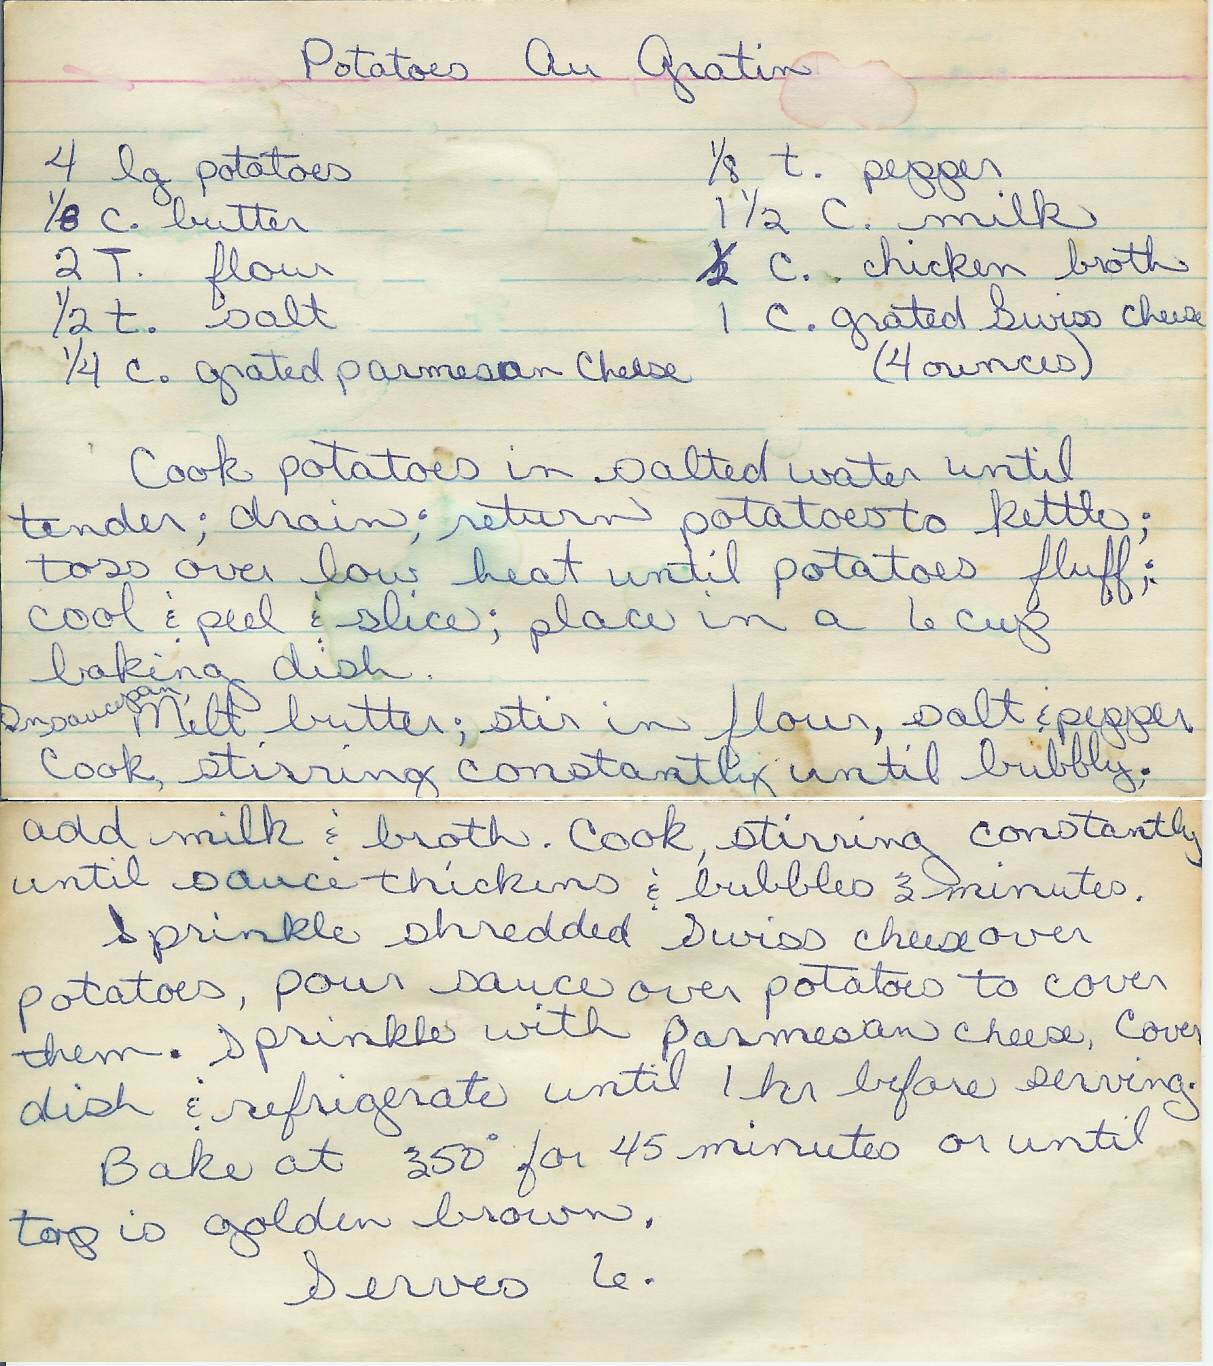 Potatoes Au Gratin
4 lg potatoes
1/8 C. butter
2 T. flour
1/2 t. salt
1/4 C. grated parmesan Cheese
1/8 t. pepper
1 1/2 C. milk
1/2 C. chicken broth
1 C. grated Swiss cheese
(4 ounces)
Cook potatoes in salted water until
tender; drain; return potatoes to kettle;
toss over low heat until potatoes fluff;
cool & peel & slice; place in a 6 cup
baking dish.
In saucepan, Melt butter; stir in flour, salt & pepper
Cook, stirring constantly until bubbly.
add milk & broth. Cook, stirring constantly
until sauce thickens & bubbles 3 minutes.
Sprinkle shredded Swiss cheese over
potatoes, pour sauce over potatoes to cover
them. Sprinkle with Parmesan cheese, Cover
dish & refrigerate until 1 hr before serving.
Bake at 350° for 45 minutes or until
top is golden brown.
Serves 6.